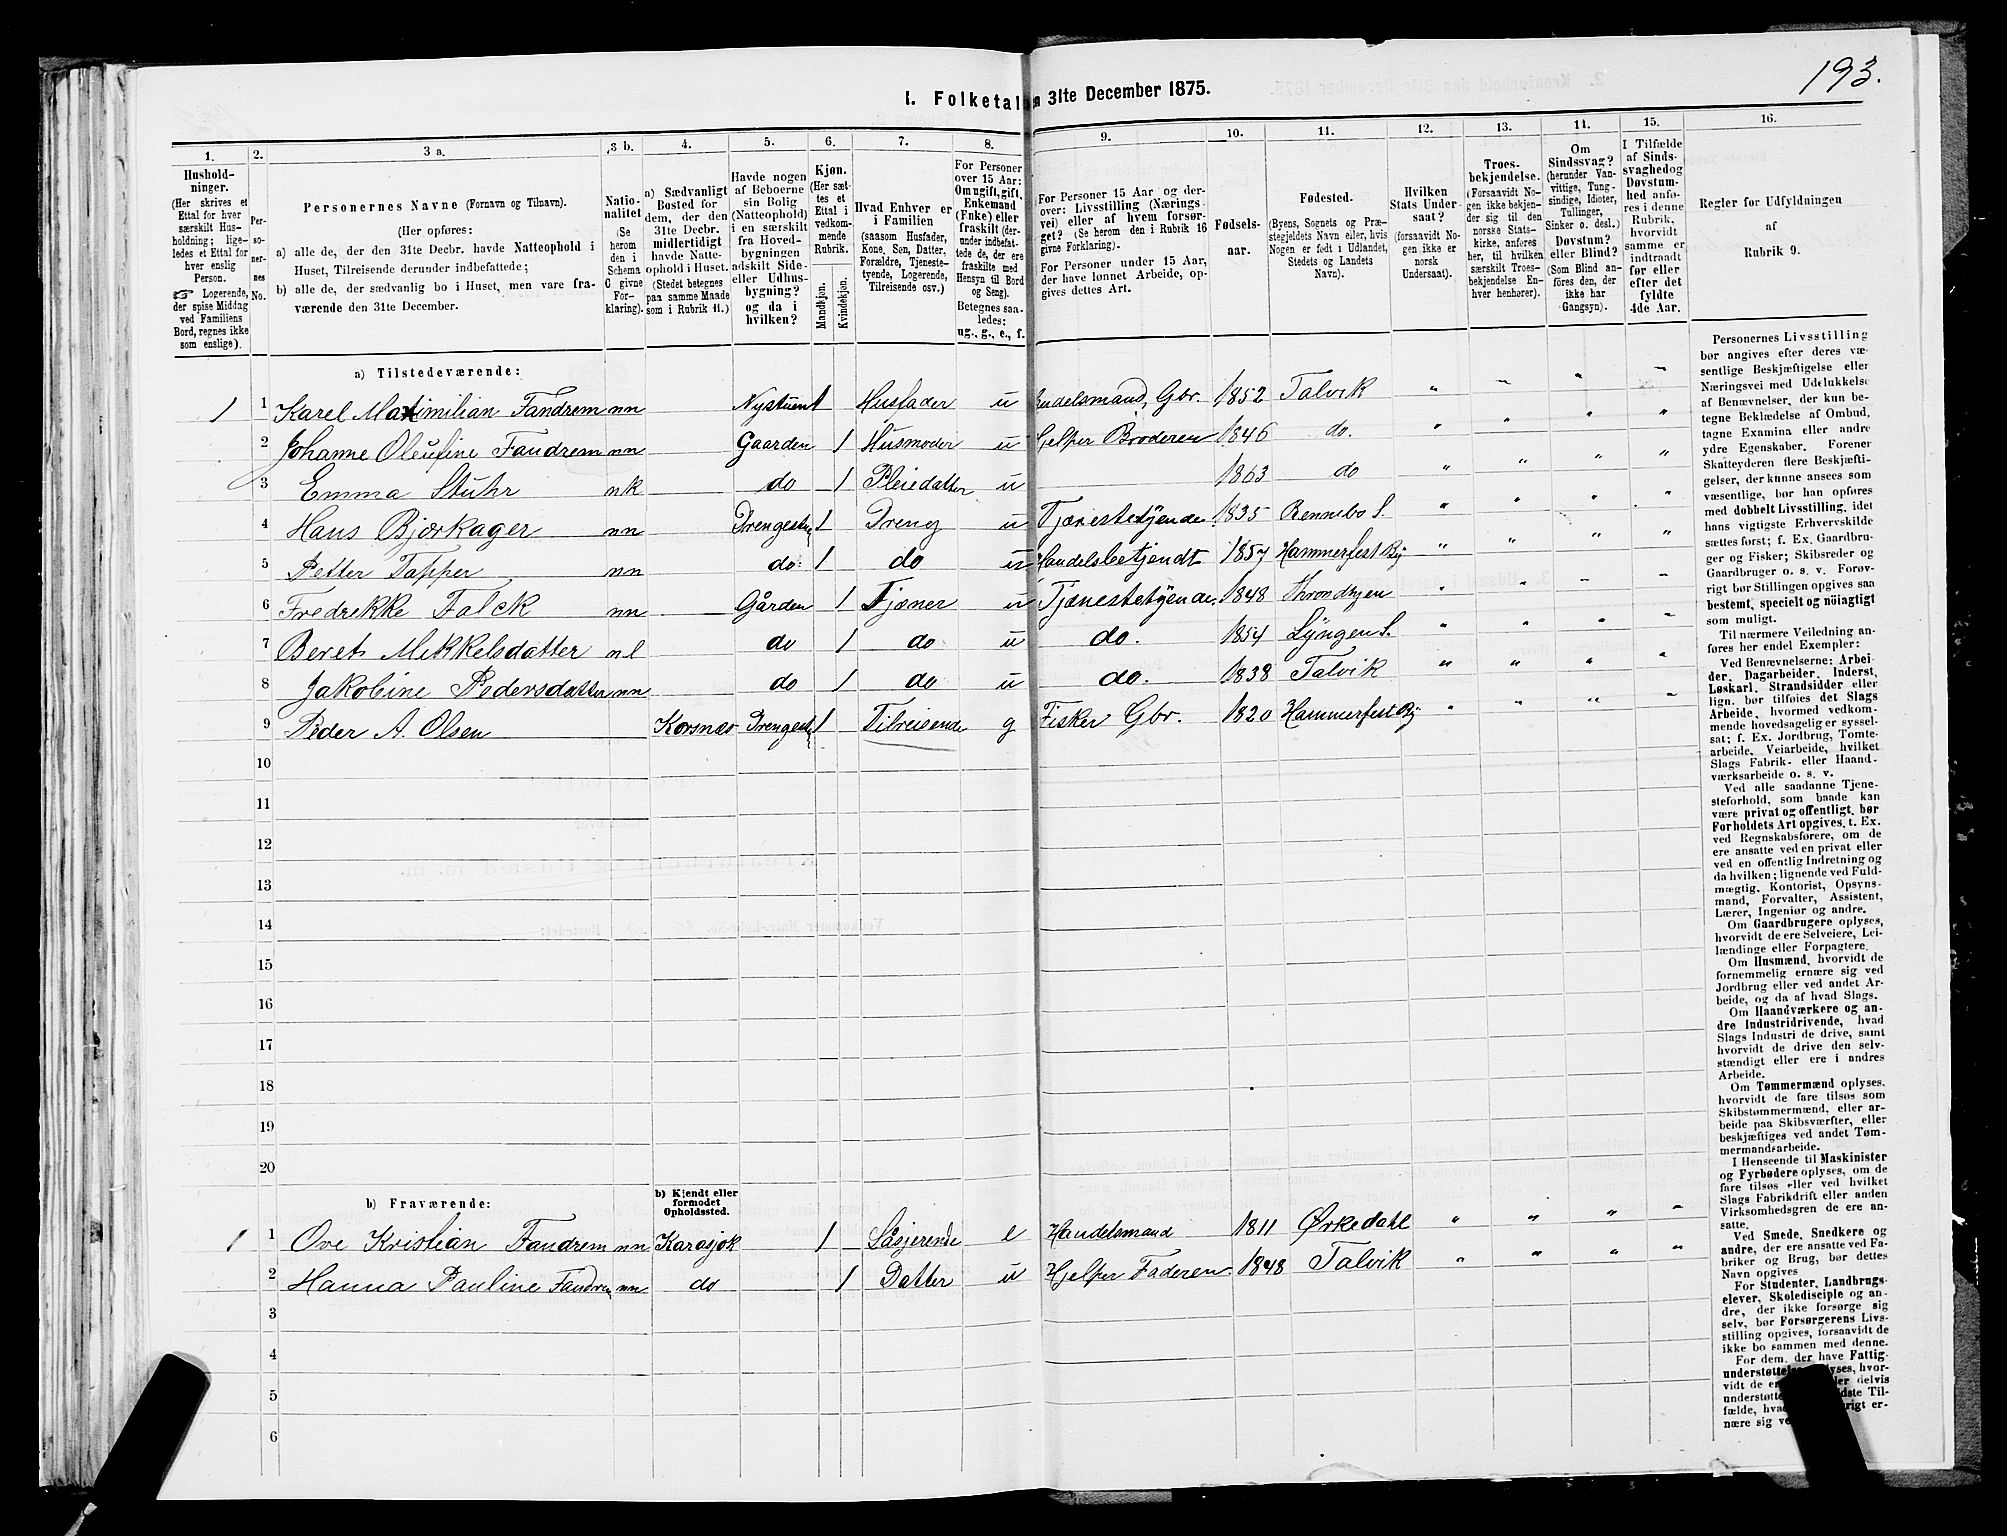 193.
I. Folketal
n 31te December 1875.
1. 2. 3 a. 3 b. 4. 5. 6. 7. 8. 9. 10. 11. 12. 13. 14. 15. 16.
Hushold-
ninger.
(Her skrives et
Ettal for hver
særskilt Hus-
holdning; lige-
ledes et Ettal for
hver enslig
Person.
☞ Logerende,
der spise Middag
ved Familiens
Bord, regnes ikke
som enslige).
Per-
so-
ner-
nes
No.
Personernes Navne (Fornavn og Tilnavn).
(Her opføres:
a) alle de, der den 31te Decbr. havde Natteophold i
Huset, Tilreisende derunder indbefattede;
b) alle de, der sædvanlig bo i Huset, men vare fra-
værende den 31te December.
Natio-
nalitet
(Se
herom
den i
Schema
C givne
For-
klaring).
a) Sædvanligt
Bosted for
dem, der den
31te Decbr.
midlertidigt
havde Natte-
ophold i Huset.
(Stedet betegnes
paa samme Maade
som i Rubrik 11.)
Havde nogen
af Beboerne
sin Bolig
(Natteophold)
i en særskilt
fra Hoved-
bygningen
adskilt Side-
eller Udhus-
bygning?
og da i
hvilken?
Kjøn.
(Her sæt-
tes et
Ettal i
vedkom-
mende
Rubrik.
Mandkjøn.
Kvindekjøn.
Hvad Enhver er
i Familien
(saasom Husfader,
Kone, Søn, Datter,
Forældre, Tjeneste-
tyende, Logerende,
Tilreisende osv.)
For Personer
over 15 Aar:
Om ugift, gift,
Enkemand
(Enke) eller
fraskilt (der-
under indbefat-
tede de, der ere
fraskilte med
Hensyn til Bord
og Seng).
Betegnes saa-
ledes:
ug., g., e., f.
For Personer 15 Aar og der-
over: Livsstilling (Nærings
vei) eller af hvem forsør-
get? (Se herom den i Rubrik 16
givne Forklaring).
For Personer under 15 Aar,
der have lønnet Arbeide, op-
gives dettes Art.
Fødsels-
aar.
Fødested.
(Byens, Sognets og Præ-
stegjeldets Navn eller, hvis
Nogen er født i Udlandet,
Stedets og Landets
Navn).
Hvilken
Stats Under-
saat?
(forsaavidt No-
gen ikke er
norsk
Undersaat).
Troes-
bekjendelse.
(Forsaavidt No-
gen ikke bekjen-
der sig til den
norske Stats-
kirke, anføres
her, til hvilken
særskilt Troes-
bekjendelse En-
hver henhører).
Om
Sindssvag?
(herunder Van-
vittige, Tung-
sindige, Idioter,
Tullinger,
Sinker o. desl.)
Døvstum?
eller Blind?
(Som Blind an-
føres den, der
ikke har
Gangsyn).
I Tilfælde
af Sinds-
svaghed og
Døvstum-
hed anfø-
res i denne
Rubrik,
hvorvidt
samme er
indtraadt
før eller
efter det
fyldte
4de Aar.
Regler for Udfyldningen
af
Rubrik 9.
a) Tilstedeværende:
1 1 Karel Maximilian Fandrem nn Nystuen 1 Husfader u Handelsmand, Gbr. 1852 Talvik " " " "
2 Johanne Oleufine Fandrem nn Gaarden 1 Husmoder u Hjelper Broderen 1846 do. " " " "
3 Emma Stuhr nk do 1 Pleiedatter u 1863 do " " " "
4 Hans Bjørkager nn Drengestu 1 Dreng u Tjenestetyende 1835 Rennebo S. " " " "
5 Petter Tapper nn do: 1 do u Handelsbetjendt 1857 Hammerfest By " " " "
6 Fredrekke Falck nn Gården 1 Tjener u Tjenestetyende. 1848 Throndhjem " " " "
7 Beret Mikkelsdatter nl do 1 do u do. 1854 Lyngen S. " " " "
8 Jakobine Pedersdatter nn do 1 do u do. 1838 Talvik " " " "
9 Peder A. Olsen Korsnæs Drengestu 1 Tilreisende g Fisker Gbr. 1820 Hammerfest By " " " "
10
11
12
13
14
15
16
17
18
19
20
b) Fraværende:
b) Kjendt eller
formodet
Opholdssted.
1 1 Ove Kristian Fandrem nn Karasjok 1 Losjerende e Handelsmand 1811 Ørkedahl " " " "
2 Hanna Pauline Fandrem nn do 1 Datter u Hjelper Faderen 1848 Talvik " " " "
3
4
5
6
Personernes Livsstilling
bør angives efter deres væ-
sentlige Beskjæftigelse eller
Næringsvei med Udelukkelse
af Benævnelser, der kun be-
tegne Beklædelse af Ombud,
tagne Examina eller andre
ydre Egenskaber. Forener
Skatteyderen flere Beskjæfti-
gelser, der kunne ansees som
væsentlige, bør han opføres
med dobbelt Livsstilling, idet
hans vigtigste Erhvervskilde
sættes først; f. Ex. Gaardbru-
ger og Fisker; Skibsreder og
Gaardbruger o. s. v. Forøv-
rigt bør Stillingen opgives saa
bestemt, specielt og nöiagtigt
som muligt.
Til nærmere Veiledning an-
føres her endel Exempler:
Ved Benævnelserne: Arbei-
der, Dagarbeider, Inderst,
Løskarl, Strandsidder eller
lign. bør tilføies det Slags
Arbeide, hvormed vedkom-
mende hovedsagelig er syssel-
sat; f. Ex. Jordbrug, Tomte-
arbeide, Veiarbeide, hvilket
Slags Fabrik- eller Haand-
værksarbeide o. s. v.
Ved alle saadanne Tjene-
steforhold, som baade kan
være privat og offentligt, bør
Forholdets Art opgives, t. Ex.
ved Regnskabsførere, om de
ere ansatte ved en privat eller
ved en offentlig Indretning og
da hvilken; lignende ved Fuld-
mægtig, Kontorist, Opsyns-
mand, Forvalter, Assistent,
Lærer, Ingeniør og andre.
Om Gaardbrugere oplyses,
hvorvidt de ere Selveiere, Lei-
lændinge eller Forpagtere.
Om Husmænd, hvorvidt de
fornemmelig ernære sig ved
Jordbrug eller ved andet Ar-
beide, og da af hvad Slags.
Om Haandværkere og an-
dre Industridrivende, hvad
Slags Industri de drive, samt
hvorvidt de drive den selv-
stændigt eller ere i andres
Arbeide.
Om Tømmermænd oplyses,
hvorvidt de fare tilsøs som
Skibstømmermænd, eller ar-
beide paa Skibsværfter, eller
beskjæftiges ved andet Tøm-
mermandsarbeide.
I Henseende til Maskinister
og Fyrbødere oplyses, om de
fare tilsøs eller ved hvilket
Slags Fabrikdrift eller anden
Virksomhedsgren de ere an-
satte.
Ved Smede, Snedkere og
andre, der ere ansatte ved Fa-
briker og Brug, bør dettes
Navn opgives
For Studenter, Landbrugs-
elever, Skoledisciple og an-
dre, der ikke forsørge sig
selv, bør Forsørgerens Livs-
stilling opgives, forsaavidt de
ikke bo sammen med denne.
For dem, der have Fattig-
understøttelse oplyses, hvor-
vidt de er eller delvis
understøtte sidste Til-
fælde, hva vrigt er-
nære sig ve